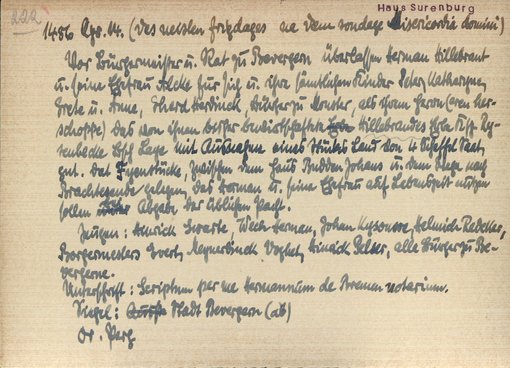 Haus Surenburg
222
1486 Apr. 14. (des nelsten fridages na dem sondage Misericordia domini)
Vor Bürgermeister u. Rat zu Bevergern überlassen Herman Hillebrant
u. seine Ehefrau Aleke für sich u. ihre sämtlichen Kinder Peter, Katharyne,
Grete u. Anne, Gherd Hardinck, Bürger zu Monster, als ihrem Heren (eren her-
schoppe) das von ihnen bisher bewirtschaftete Hillebrandes Erbe Ksp.
Bsch. Lage mit Ausnahme eines Stückes Land von 4 Scheffel Saat,
gnt. dat Stücke, zwischen dem Haus Budden Johans u. dem Wege nach
Brachtesende gelegen. Das Herman u. seine Ehefrau auf Lebenszeit nutzen
sollen unter Abgabe der üblichen Pacht.
Zeugen: Hinrick Swarte, Herman, Johan, Helmich Redeker,
Borgermesters Evert, Meynerdinck Voghet, Hinrick, alle Bürger zu Be-
vergerne.
Unterschrift: Scriptum per me Hermannum de Bremen notarium.
Siegel: Stadt Bevergern (ab)
Or. Perg